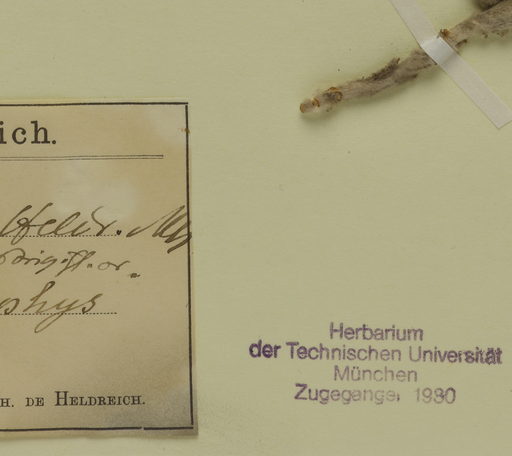 ich.
Heldr.
Brig. fl. or.
H. DE HELDREICH.
Herbarium
der Technischen Universität
München
Zugegangen 1980